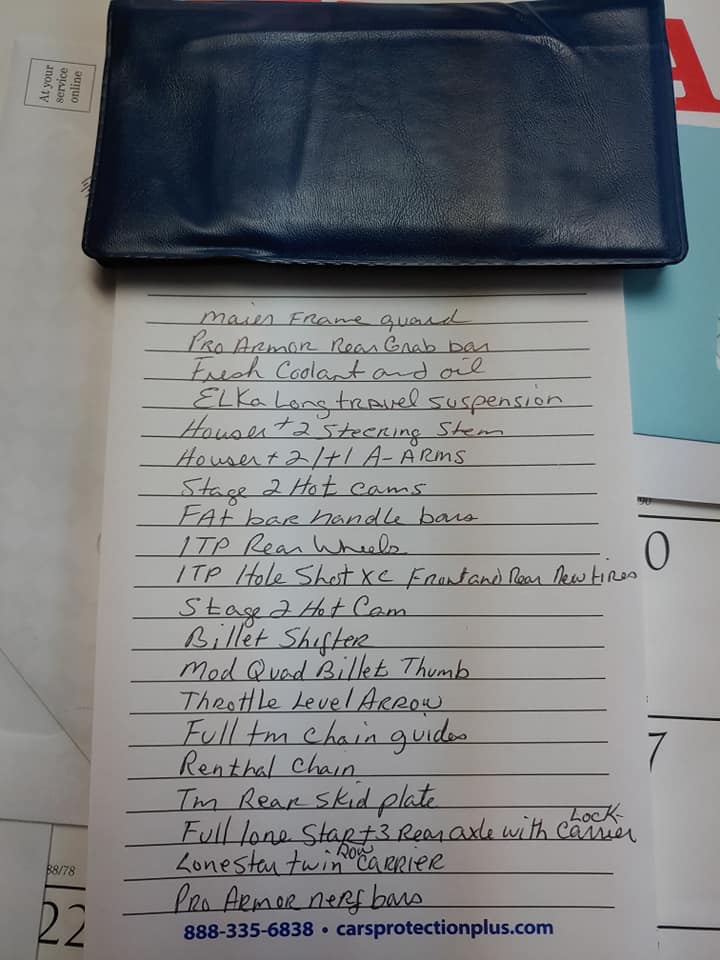 At your
service
online
A
Maier Frame guard
PRO ARMOR Rear Grab bar
Fresh Coolant and oil
ELKa Long travel suspension
Houser +2 Steering Stem
Houser +2/+1 A-ARMS
Stage 2 Hot Cams
FAt bar handle bars
ITP Rear Wheels
ITP Hole Shot XC Front and Rear New tires
Stage 2 Hot Cam
Billet Shifter
Mod Quad Billet Thumb
Throttle Level ARROW
Full tm chain guides
Renthal Chain
Tm Rear skid plate
Lock-
Full lone Star +3 Rear axle with Carrier
Lonestar twin Row CARRIER
PRO ARMOR nerf bars
888-335-6838 • carsprotectionplus.com
90
0
7
88/78
22